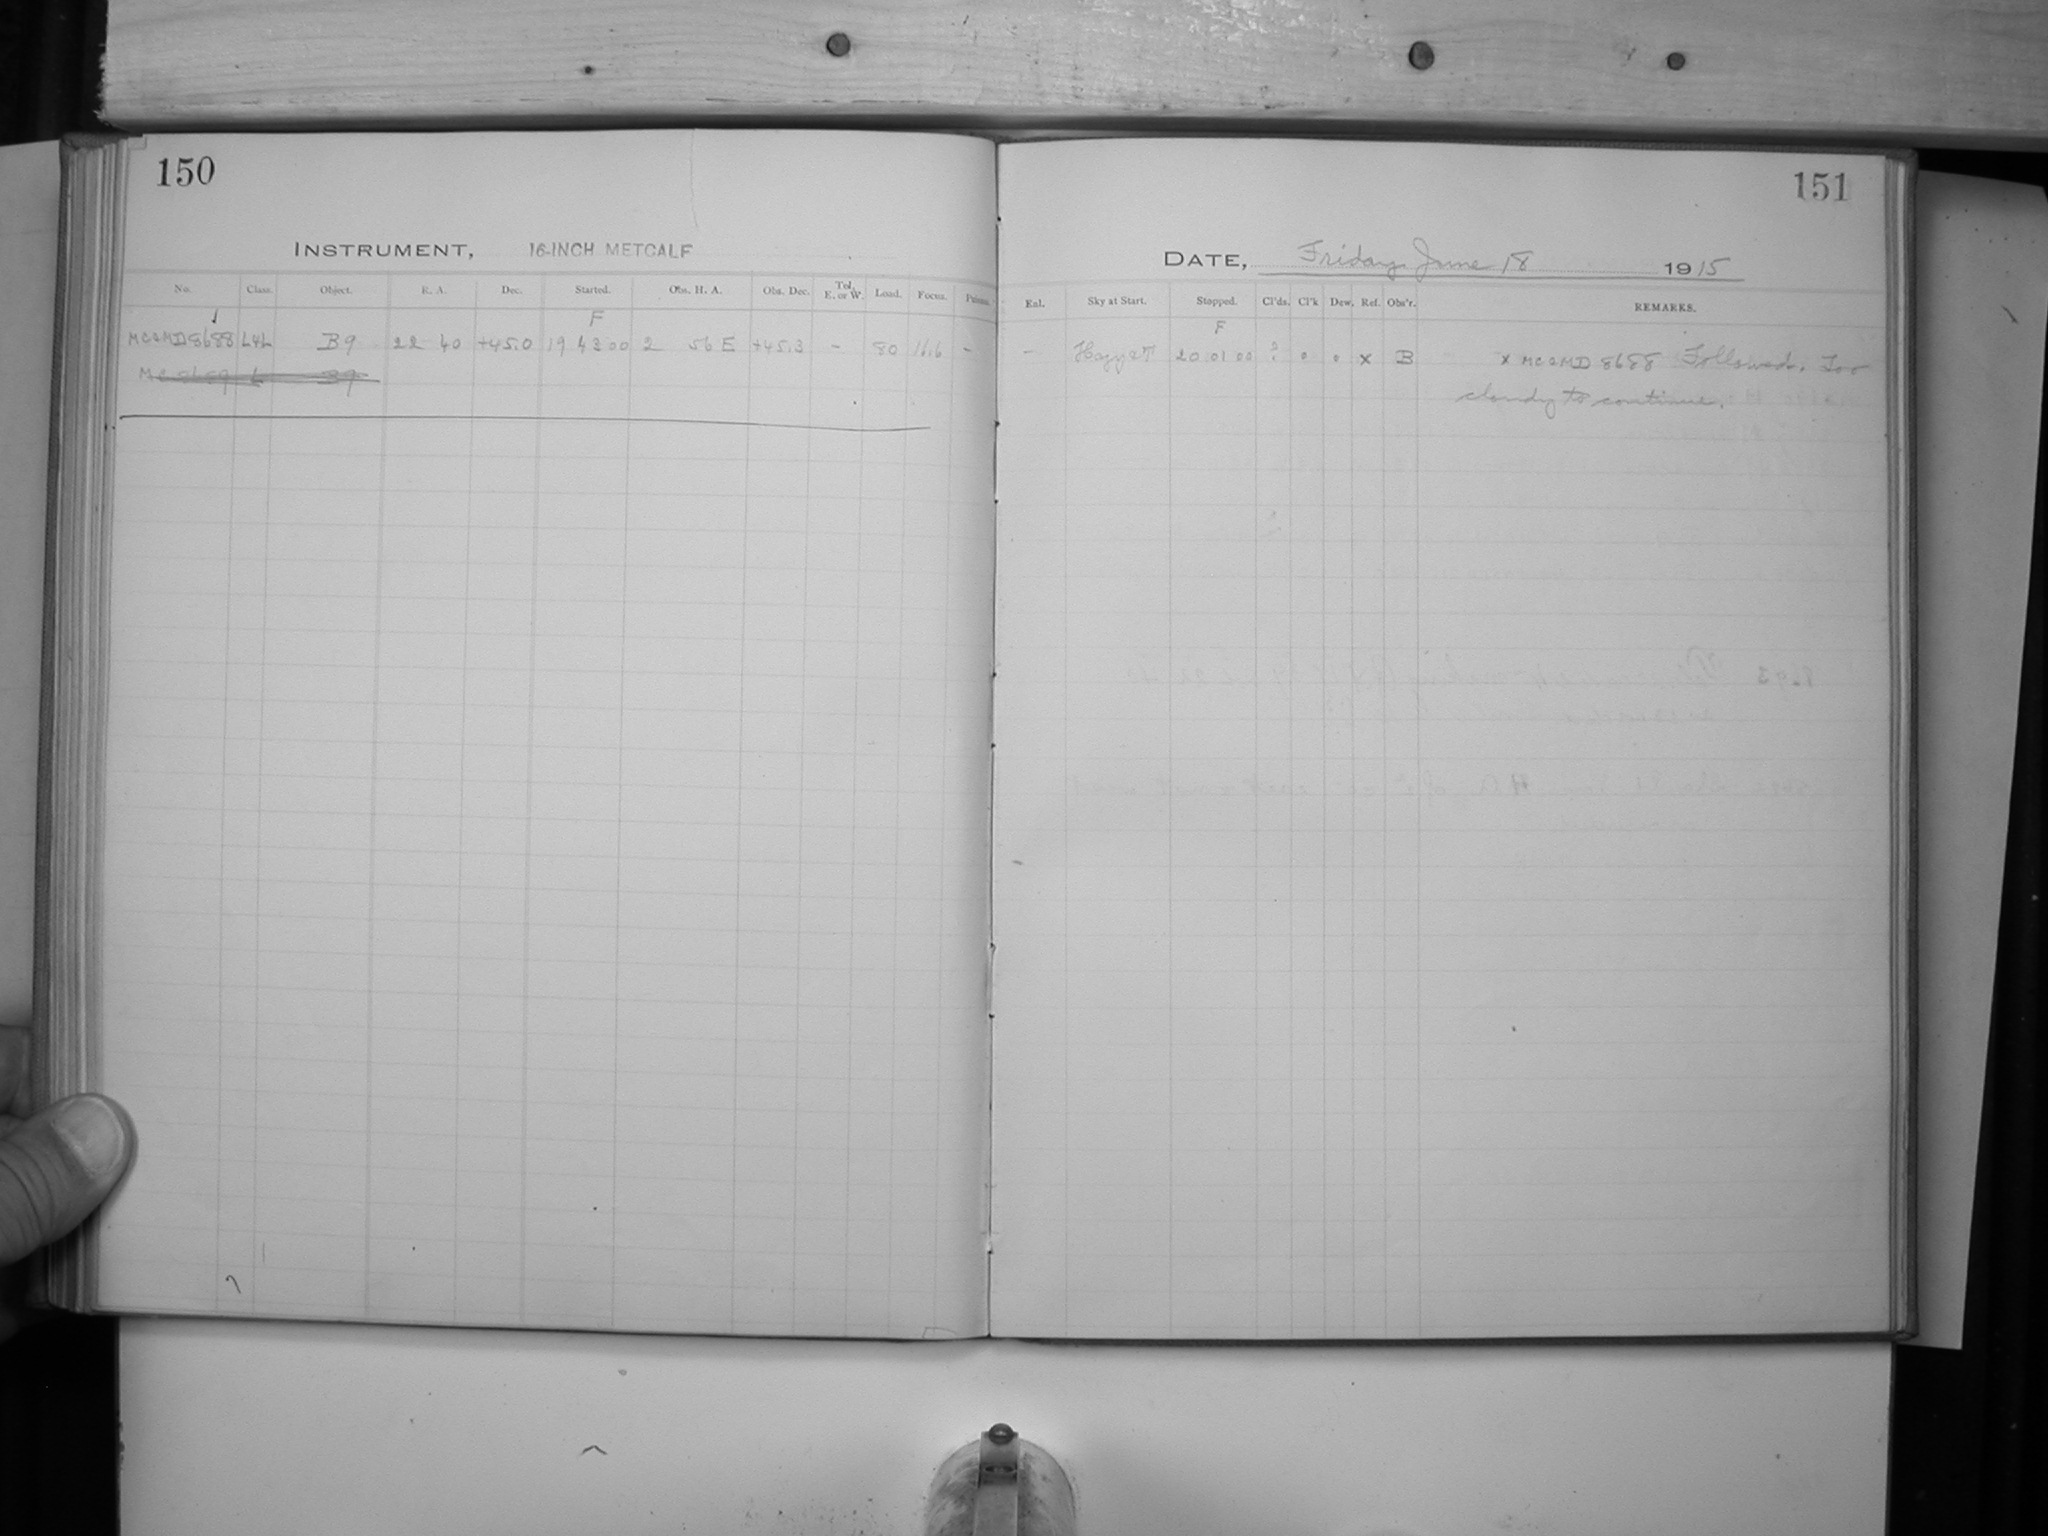 150
INSTRUMENT, 16-INCH METCALF
No. Class. Object. R. A. Dec. Started. Obs. H. A. Obs. Dec. Tel. E. or W. Load. Focus.
F
8688 L4L B9 22 40 +45.0 19 43 00 2 56 E +45.3 - 80 16.6 -
B9
151
DATE, Friday June 18 1915
Enl. Sky at Start. Stopped. Cl'ds. Cl'k Dew. Ref. Obs'r. REMARKS.
F
- 20 01 00 x B x 8688 Followed. Too
cloudy to continue.